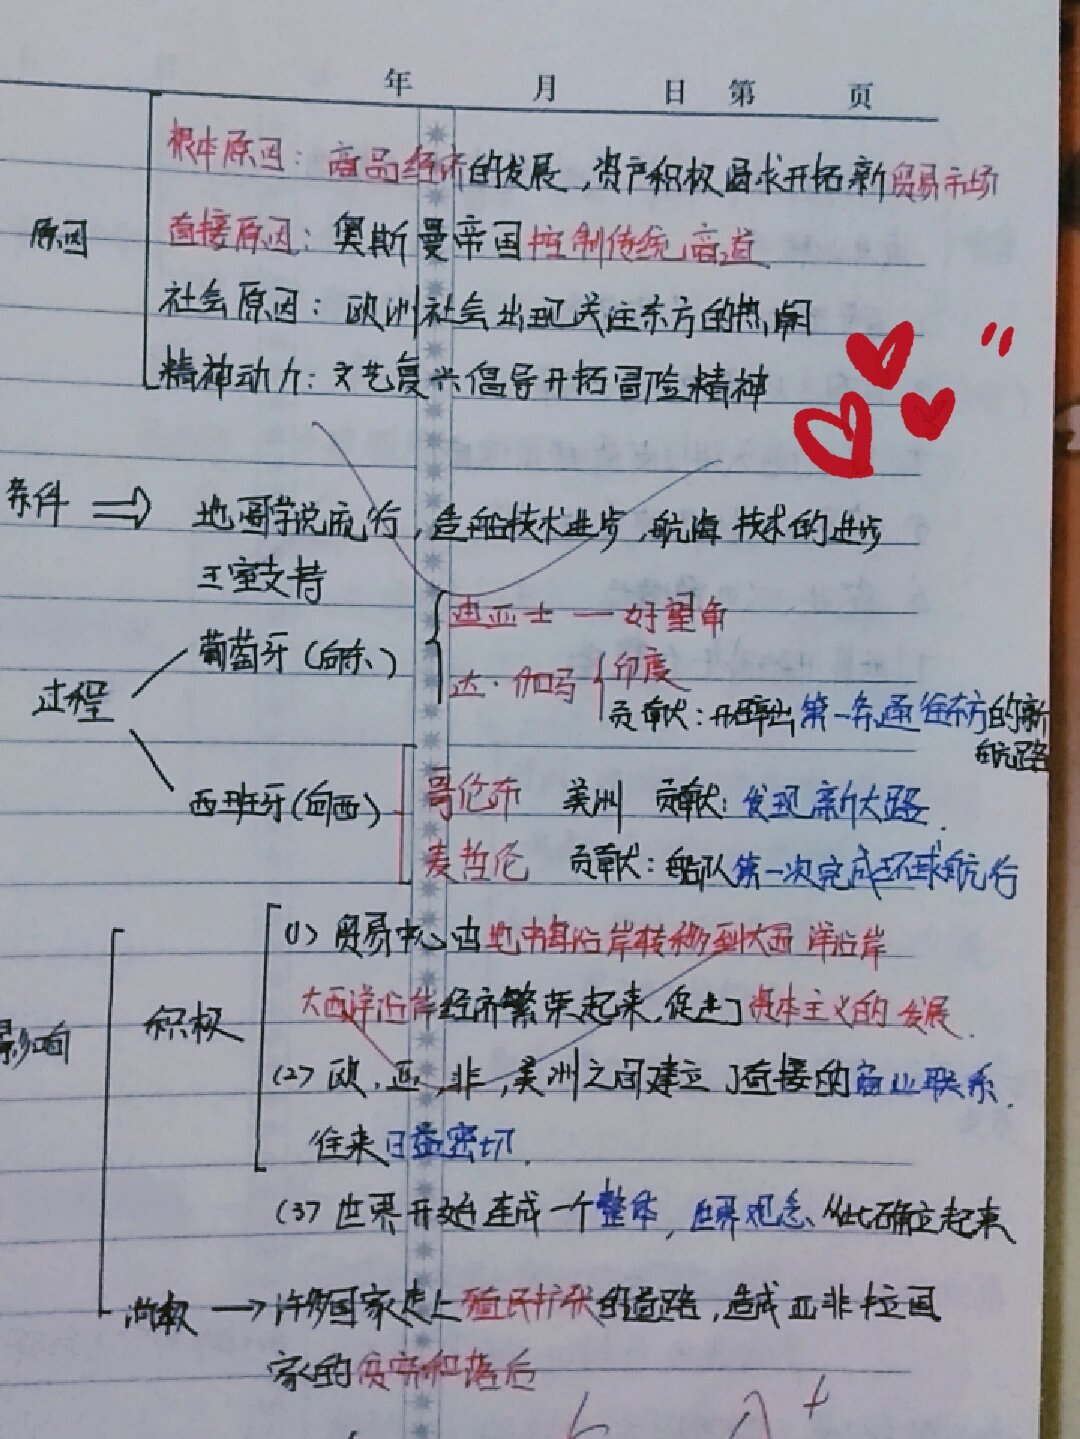 年 月 日 第 页
根本原因：商品经济的发展，资产积极渴求开拓新贸易市场
原因
直接原因：奥斯曼帝国控制传统商道
社会原因：欧洲社会出现关注东方的热潮
精神动力：文艺复兴倡导开拓冒险精神
条件 ⇒ 地圆学说流行，造船技术进步，航海技术的进步
王室支持
过程
葡萄牙（向东）
迪亚士 — 好望角
达·伽马 印度
贡献：开辟出第一条通往东方的新
航路
西班牙（向西）
哥伦布 美洲 贡献：发现新大陆.
麦哲伦 贡献：船队第一次完成环球航行
影响
积极
(1) 贸易中心由地中海沿岸转移到大西洋沿岸
大西洋沿岸经济繁荣起来，促进了资本主义的发展.
(2) 欧，亚，非，美洲之间建立了直接的商业联系.
往来日益密切.
(3) 世界开始连成一个整体，世界观念从此确立起来
消极 → 许多国家走上殖民扩张的道路，造成亚非拉国
家的贫穷和落后